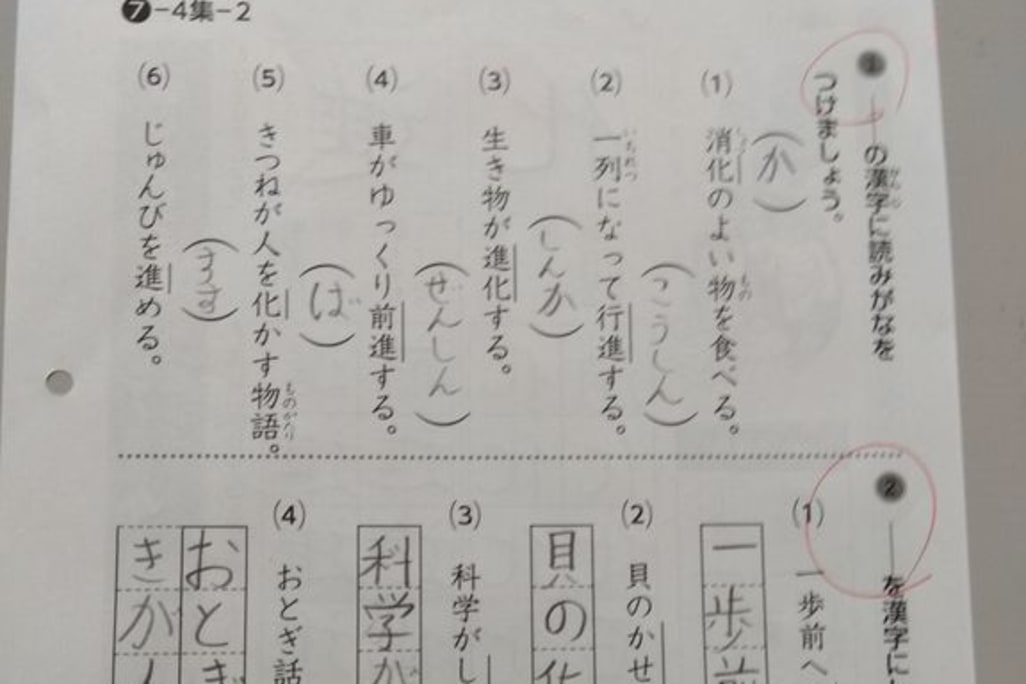 ❼-4集-2
❶ ―の漢字に読みがなを
つけましょう。
(1) 消化のよい物を食べる。
(か)
(2) 一列になって行進する。
(こうしん)
(3) 生き物が進化する。
(しんか)
(4) 車がゆっくり前進する。
(ぜんしん)
(5) きつねが人を化かす物語。
(ば)
(6) じゅんびを進める。
(すす)
❷ ―を漢字に
(1) 一歩前へ
一歩前
(2) 貝のかせ
貝の化
(3) 科学がし
科学が
(4) おとぎ話
おとぎ
きか